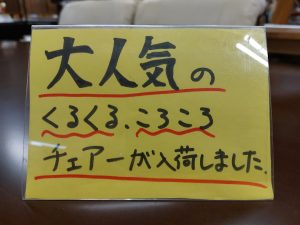 大人気の
くるくる、ころころ
チェアーが入荷しました.